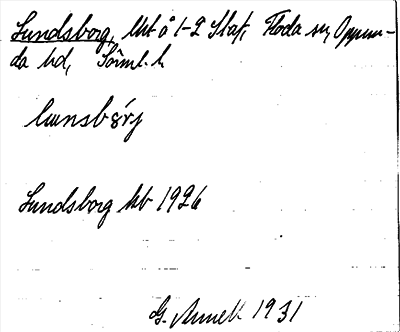 Lundsborg, lht å 1-2 Staf, Floda sn, Oppun-
da hd, Söml. l.
lunsbörj
Lundsborg hb 1926
G. 1931